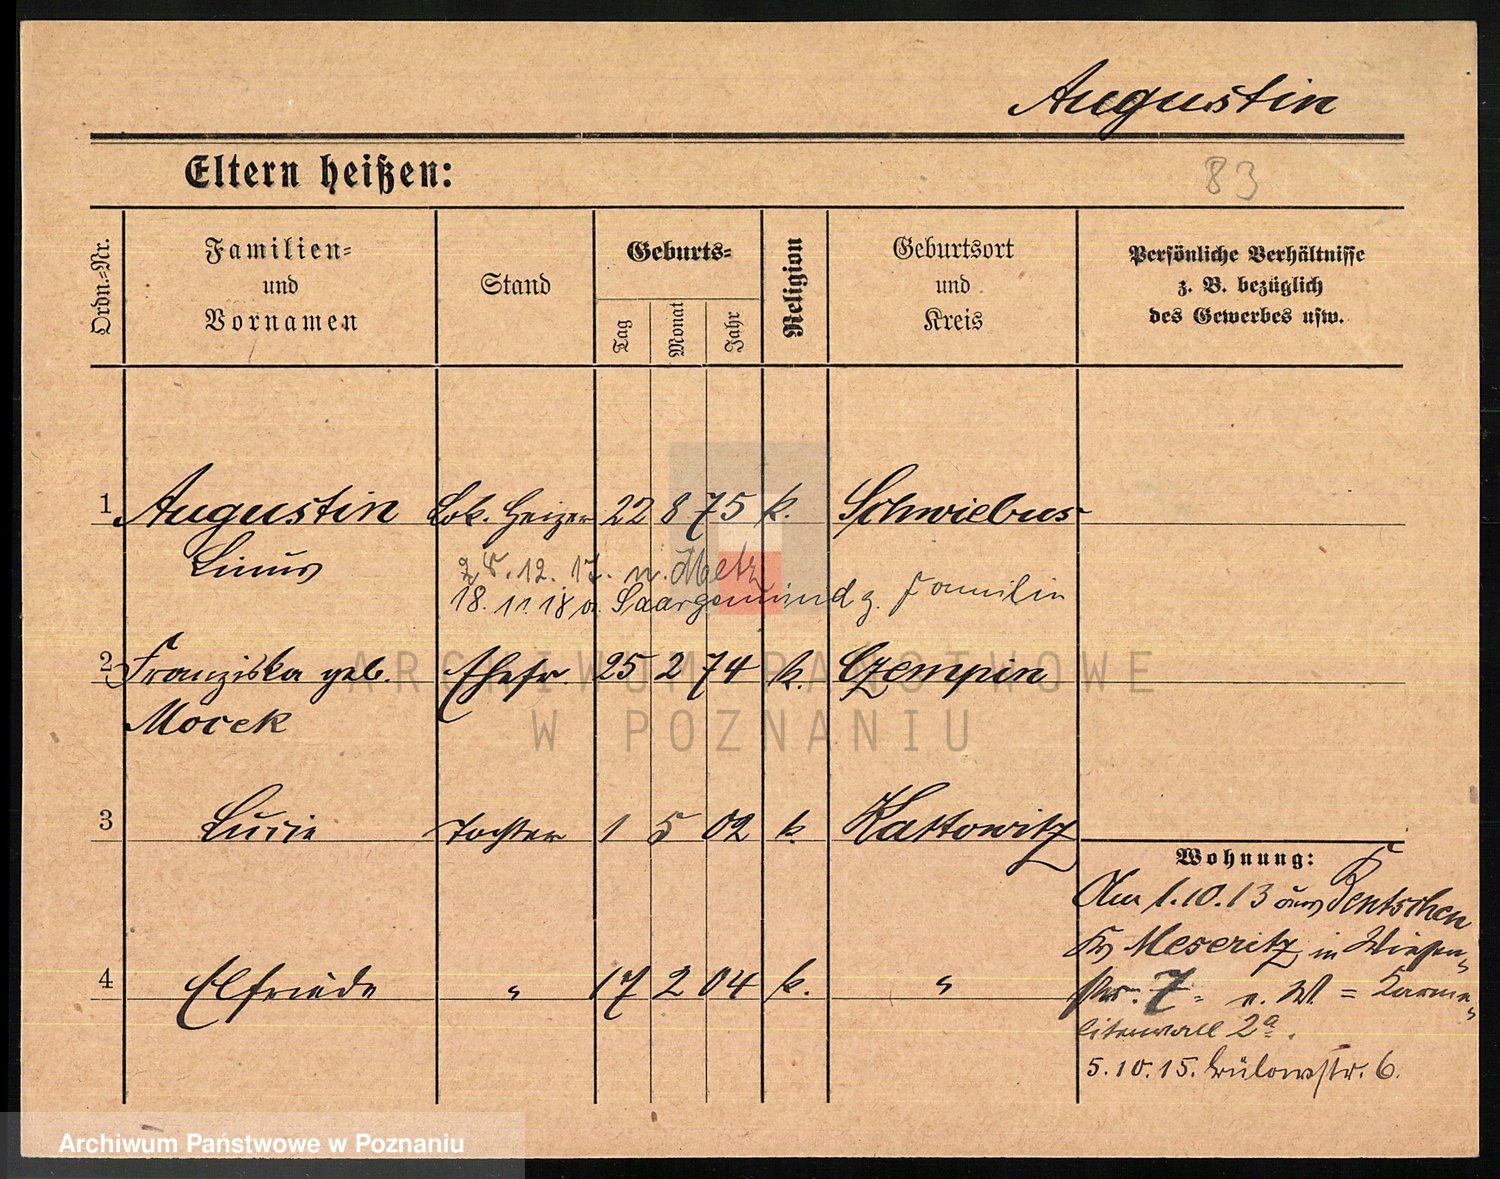 Augustin
Eltern heißen:
83
Ordn.-Nr.
Familien-
und
Vornamen
Stand
Geburts-
Tag
Monat
Jahr
Religion
Geburtsort
und
Kreis
Persönliche Verhältnisse
z. B. bezüglich
des Gewerbes usw.
1 Augustin Lok. Heizer 22 8 75 k. Schwiebus
Linus
28.12.17. n. Metz
18.11.18 a. Saargemünd z. Familie
2 Franziska geb. Ehefr. 25 2 74 k. Czempin
Mocek
3 Lucie Tochter 1 5 02 k. Kattowitz
Wohnung:
Am 1.10.13 aus Bentschen
Kr Meseritz in Wiesen-
4 Elfriede " 17 2 04 k. "
str. 7. W = Karme-
literwall 2a.
5.10.15. Bülowstr. 6.
ARCHIWUM PAŃSTWOWE
W POZNANIU
Archiwum Państwowe w Poznaniu